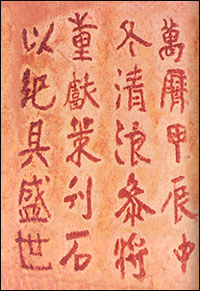 萬曆甲辰中
冬清浪叅將
董獻策刊石
以紀其盛世